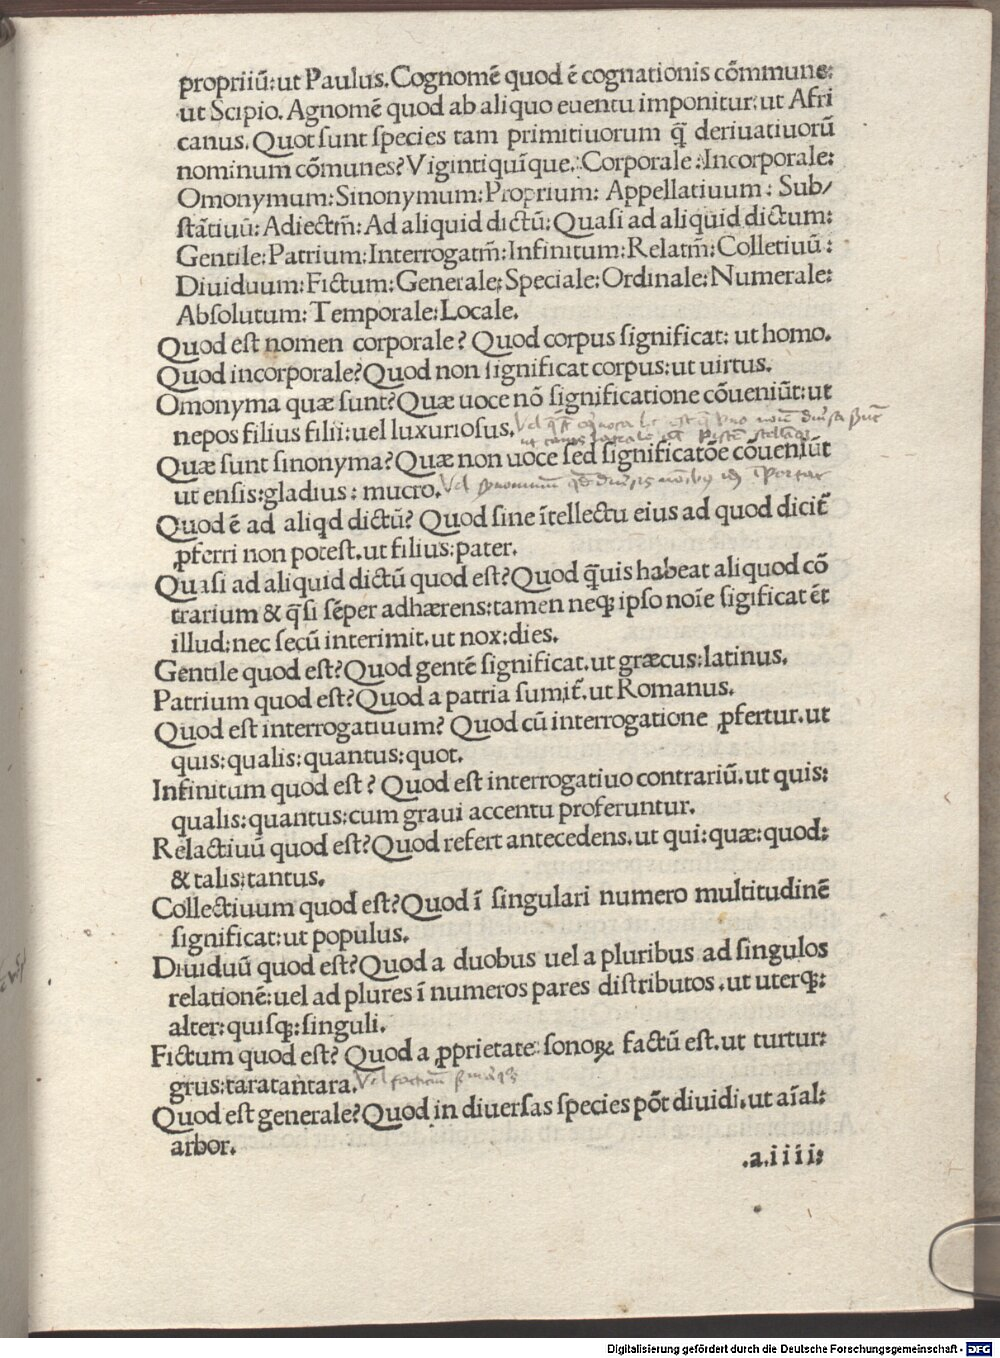 propriiū:ut Paulus.Cognomē quod ē cognationis cōmune:
ut Scipio.Agnomē quod ab aliquo euentu imponitur:ut Afri
canus.Quot ſunt ſpecies tam primitiuorum q̄ deriuatiuorū
nominum cōmunes?Vigintiquīque.:Corporale:Incorporale:
Omonymum:Sinonymum:Proprium: Appellatiuum: Sub/
ſtātiuū: Adiectm̄: Ad aliquid dictū:Quaſi ad aliquid dictum:
Gentile:Patrium:Interrogatm̄:Infinitum:Relatm̄:Colletiuū:
Diuiduum:Fictum:Generale:Speciale:Ordinale:Numerale:
Abſolutum:Temporale:Locale.
Quod eſt nomen corporale? Quod corpus ſignificat: ut homo.
Quod incorporale?Quod non ſignificat corpus:ut uirtus.
Omonyma quæ ſunt?Quæ uoce nō ſignificatione cōueniūt:ut
nepos filius filii:uel luxurioſus.
Quæ ſunt ſinonyma?Quæ non uoce ſed ſignificatōe cōueniūt
ut enſis:gladius: mucro.
Quod ē ad aliqd dictū? Quod ſine ītellectu eius ad quod dicit̄
ꝓferri non poteſt.ut filius:pater.
Quaſi ad aliquid dictū quod eſt?Quod q̄uis habeat aliquod cō
trarium & q̄ſi ſēper adhærens:tamen neqꝫ ipſo noīe ſigificat ēt
illud:nec ſecū interimit.ut nox:dies.
Gentile quod eſt?Quod gentē ſignificat.ut græcus:latinus.
Patrium quod eſt?Quod a patria ſumit̄.ut Romanus.
Quod eſt interrogatiuum? Quod cū interrogatione ꝓfertur.ut
quis:qualis:quantus:quot.
Infinitum quod eſt? Quod eſt interrogatiuo contrariū.ut quis:
qualis:quantus:cum graui accentu proferuntur.
Relactiuū quod eſt?Quod refert antecedens.ut qui:quæ:quod:
& talis:tantus.
Collectiuum quod eſt?Quod ī ſingulari numero multitudinē
ſignificat:ut populus.
Diuiduū quod eſt?Quod a duobus uel a pluribus ad ſingulos
relationē:uel ad plures ī numeros pares diſtributos.ut uterqꝫ:
alter:quiſqꝫ:ſinguli.
Fictum quod eſt? Quod a ꝓprietate ſonoꝝ factū eſt.ut turtur:
grus:taratantara.
Quod eſt generale?Quod in diuerſas ſpecies pōt diuidi.ut aīal:
arbor.
.a.iiii:
Digitalisierung gefördert durch die Deutsche Forschungsgemeinschaft - DFG